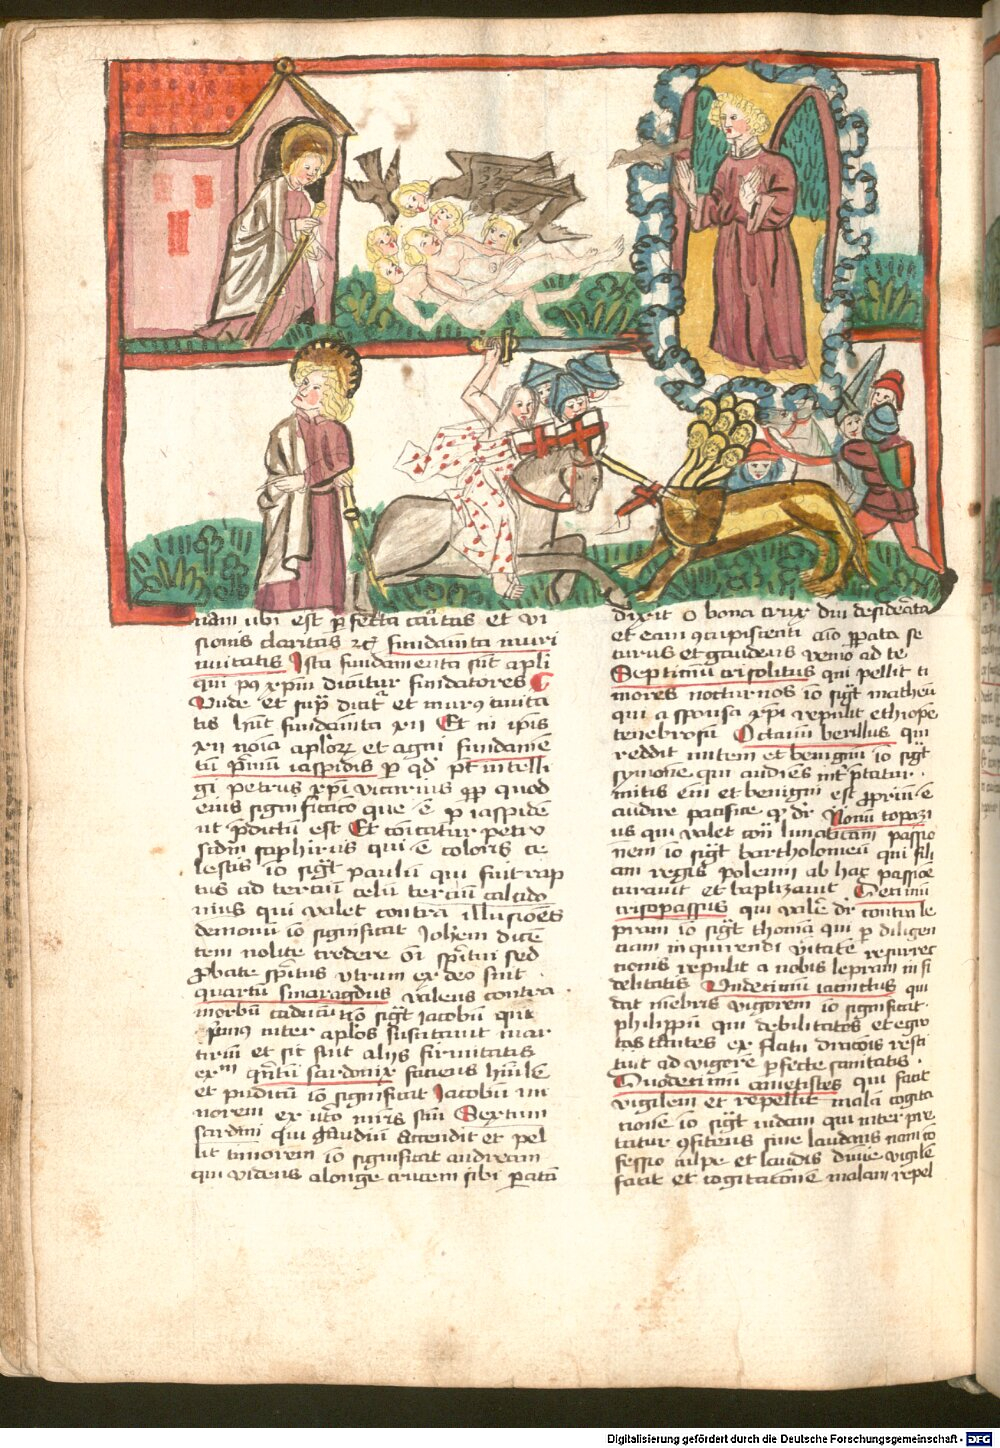 nam ubi est p̄fecta caritas et vi
sionis claritas ꝛc̄ fundam̄ta muri
ciuitatis Ista fundamenta sūt apłi
qui pꝰ xp̄m dicūtur fundatores
Vnde et sup̄ dicit et murꝰ ciuita
tis hn̄t fundam̄ta xii Et in ip̄is
xii noīa apłoꝝ et agni fundamē
tū p̄mū iaspidis ꝑ qđ pt̄ intelli
gi petrus xp̄i vicarius quod
eius significacō que ē ꝑ iaspidē
ut p̄dictū est Et petro
saphirus qui ē coloris ce
lestis iō sigt̄ paulū qui fuit rap
tus ad terciū celū terciū calcido
nius qui valet contra illusiōes
demonū iō significat Joh̄em dicē
tem nolite credere oī sp̄itui sed
ꝓbate sp̄itus vtrum ex deo sint
quartū smaragdus valens contra
morbū caducū iō sigt̄ Jacobū qui
p̄mus inter apłos suscitauit mar
tiriū et sic fuit alijs firmitatis
exm̄ qn̄tū sardonix faciens hūilē
et pudicū iō significat Jacobū mi
norem ex vt̄o mr̄is sciū Sextum
sardini qui gaudiū accendit et pel
lit timorem iō significat andream
qui videns alonge crucem sibi ꝑatā
dixit O bona crux diu desid̄ata
et eam ꝯcupiscenti aīo p̄pata se
curus et gaudens venio ad te
Septimū crisolitus qui pellit ti
mores nocturnos iō sigt̄ matheū
qui a sponsa xp̄i repulit ethiopē
tenebrosū Octauū berillus qui
reddit mitem et benignū iō sigt̄
symonē qui audiēs int̄p̄tatur
mitis eni et benigni est ꝓpriū ē
audire pacifice dr̄ Nonū topazi
us qui valet con̄ lunaticam passio
nem iō sigt̄ bartholomeū qui fili
am regis polemii ab hac passiōe
curauit et baptizauit Decimū
crisopassus qui valē dr̄ contra le
pram iō sigt̄ thomā qui ꝑ diligen
ciam inquirendi v̄itatē resurrec
tionis repulit a nobis lepram infi
delitatis Vndecimū iacinctus qui
dat mēbris vigorem iō significat
philippū qui debilitatōs et egro
tātes ex flatu draconis resti
tuit ad vigorē ꝑfecte sanitatis
Duodecimū ametistes qui facit
vigilem et repellit malā cogita
tionē iō sigt̄ iudam qui inter pre
tatur ꝯfitens siue laudans nam cō
fessio culpe et laudis diuīe vigilē
facit et cogitationē malam repel
Digitalisierung gefördert durch die Deutsche Forschungsgemeinschaft - DFG